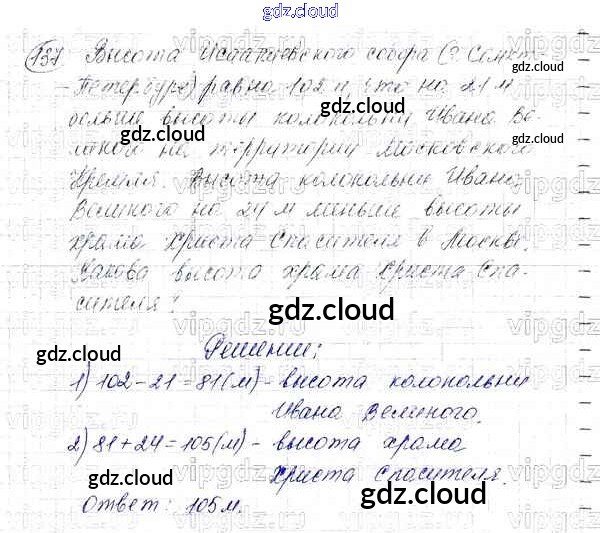 gdz.cloud
137 Высота Исаакиевского собора (г. Санкт-
-Петербург) равна 102 м, что на 21 м
больше высоты колокольни Ивана Ве-
ликого на территории Московского
Кремля. Высота колокольни Ивана
Великого на 24 м меньше высоты
храма Христа Спасителя в Москве.
Какова высота храма Христа Спа-
сителя?
Решение:
1) 102 - 21 = 81 (м) - высота колокольни
Ивана Великого.
2) 81 + 24 = 105 (м) - высота храма
Христа Спасителя.
Ответ: 105 м.